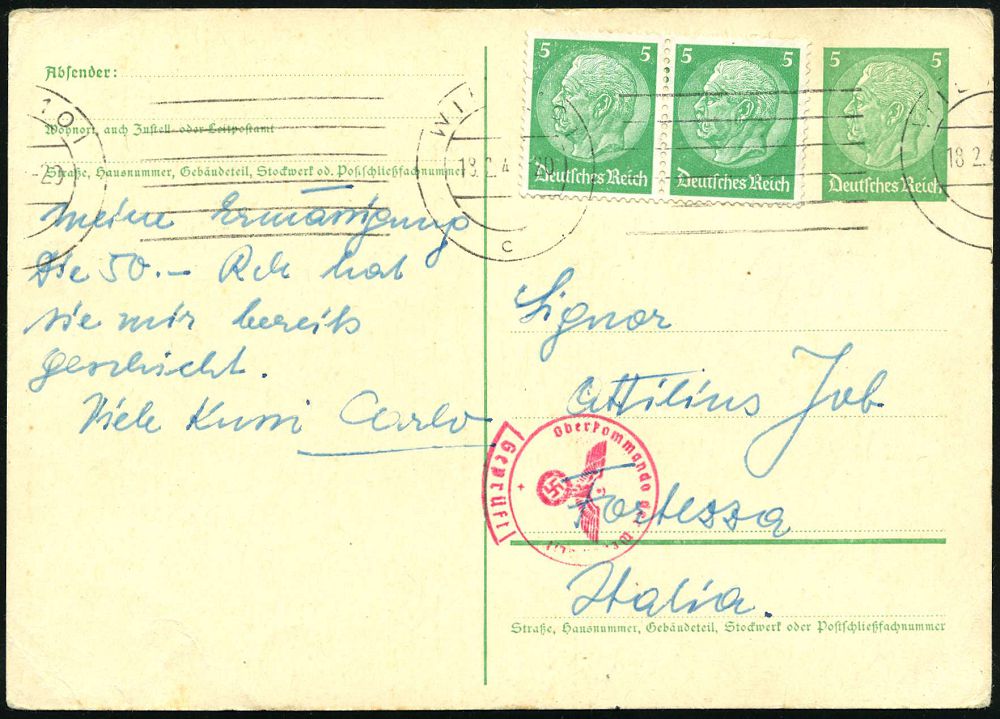 Absender:
Wohnort, auch Zustell- oder Leitpostamt
Straße, Hausnummer, Gebäudeteil, Stockwerk od. Postschließfachnummer
meine Ermässigung
Die 50.— hat
sie mir bereits
geschickt.
Viele Carlo
5 5
Deutsches Reich
5 5
Deutsches Reich
5 5
Deutsches Reich
18.2.4
20
c
18.2.4
-20
Signor
Attilius Job
Fortezza
Italia.
Geprüft
Oberkommando der
Straße, Hausnummer, Gebäudeteil, Stockwerk oder Postschließfachnummer